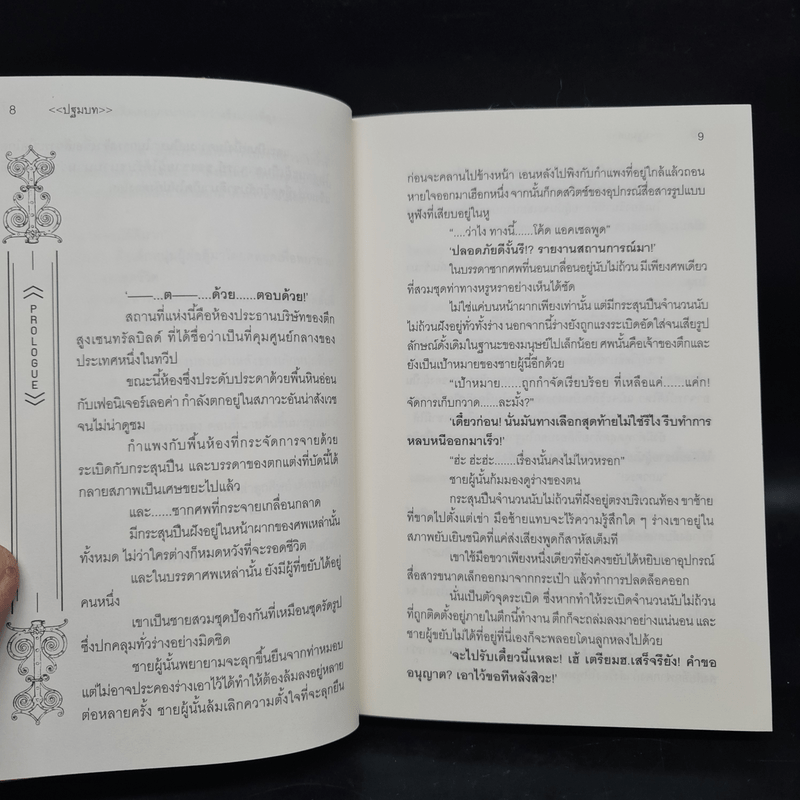 8
<<ปฐมบท>>
PROLOGUE
'——...ต——....ด้วย......ตอบด้วย!'
สถานที่แห่งนี้คือห้องประธานบริษัทของตึก
สูงเซนทรัลบิลด์ ที่ได้ชื่อว่าเป็นที่คุมศูนย์กลางของ
ประเทศหนึ่งในทวีป
ขณะนี้ห้องซึ่งประดับประดาด้วยพื้นหินอ่อน
กับเฟอนิเจอร์เลอค่า กำลังตกอยู่ในสภาวะอันน่าสังเวช
จนไม่น่าดูชม
กำแพงกับพื้นห้องที่กระจัดการจายด้วย
ระเบิดกับกระสุนปืน และบรรดาของตกแต่งที่บัดนี้ได้
กลายสภาพเป็นเศษขยะไปแล้ว
และ......ซากศพที่กระจายเกลื่อนกลาด
มีกระสุนปืนฝังอยู่ในหน้าผากของศพเหล่านั้น
ทั้งหมด ไม่ว่าใครต่างก็หมดหวังที่จะรอดชีวิต
และในบรรดาศพเหล่านั้น ยังมีผู้ที่ขยับได้อยู่
คนหนึ่ง
เขาเป็นชายสวมชุดป้องกันที่เหมือนชุดรัดรูป
ซึ่งปกคลุมทั่วร่างอย่างมิดชิด
ชายผู้นั้นพยายามจะลุกขึ้นยืนจากท่าหมอบ
แต่ไม่อาจประคองร่างเอาไว้ได้ทำให้ต้องล้มลงอยู่หลาย
ต่อหลายครั้ง ชายผู้นั้นล้มเลิกความตั้งใจที่จะลุกยืน
9
ก่อนจะคลานไปข้างหน้า เอนหลังไปพิงกับกำแพงที่อยู่ใกล้แล้วถอน
หายใจออกมาเฮือกหนึ่ง จากนั้นก็กดสวิตช์ของอุปกรณ์สื่อสารรูปแบบ
หูฟังที่เสียบอยู่ในหู
"....ว่าไง ทางนี้......โค้ด แอคเซลพูด"
'ปลอดภัยดีงั้นรึ!? รายงานสถานการณ์มา!'
ในบรรดาซากศพที่นอนเกลื่อนอยู่นับไม่ถ้วน มีเพียงศพเดียว
ที่สวมชุดท่าทางหรูหราอย่างเห็นได้ชัด
ไม่ใช่แค่บนหน้าผากเพียงเท่านั้น แต่มีกระสุนปืนจำนวนนับ
ไม่ถ้วนฝังอยู่ทั่วทั้งร่าง นอกจากนี้ร่างยังถูกแรงระเบิดอัดใส่จนเสียรูป
ลักษณ์ดั้งเดิมในฐานะของมนุษย์ไปเล็กน้อย ศพนั้นคือเจ้าของตึกและ
ยังเป็นเป้าหมายของชายผู้นี้อีกด้วย
"เป้าหมาย......ถูกกำจัดเรียบร้อย ที่เหลือแค่......แค่ก!
จัดการเก็บกวาด......ละมั้ง?"
'เดี๋ยวก่อน! นั่นมันทางเลือกสุดท้ายไม่ใช่รึไง รีบทำการ
หลบหนีออกมาเร็ว!'
"ฮ่ะ ฮ่ะฮ่ะ.......เรื่องนั้นคงไม่ไหวหรอก"
ชายผู้นั้นก้มมองดูร่างของตน
กระสุนปืนจำนวนนับไม่ถ้วนที่ฝังอยู่ตรงบริเวณท้อง ขาซ้าย
ที่ขาดไปตั้งแต่เข่า มือซ้ายแทบจะไร้ความรู้สึกใด ๆ ร่างเขาอยู่ใน
สภาพยับเยินชนิดที่แค่ส่งเสียงพูดก็สาหัสเต็มที
เขาใช้มือขวาเพียงหนึ่งเดียวที่ยังคงขยับได้หยิบเอาอุปกรณ์
สื่อสารขนาดเล็กออกมาจากกระเป๋า แล้วทำการปลดล็อคออก
นั่นเป็นตัวจุดระเบิด ซึ่งหากทำให้ระเบิดจำนวนนับไม่ถ้วน
ที่ถูกติดตั้งอยู่ภายในตึกนี้ทำงาน ตึกก็จะถล่มลงมาอย่างแน่นอน และ
ชายผู้ขยับไม่ได้ที่อยู่ที่นี่เองก็จะพลอยโดนลูกหลงไปด้วย
'จะไปรับเดี๋ยวนี้แหละ! เฮ้ เตรียมฮ.เสร็จรึยัง! คำขอ
อนุญาต? เอาไว้ขอทีหลังสิวะ!'